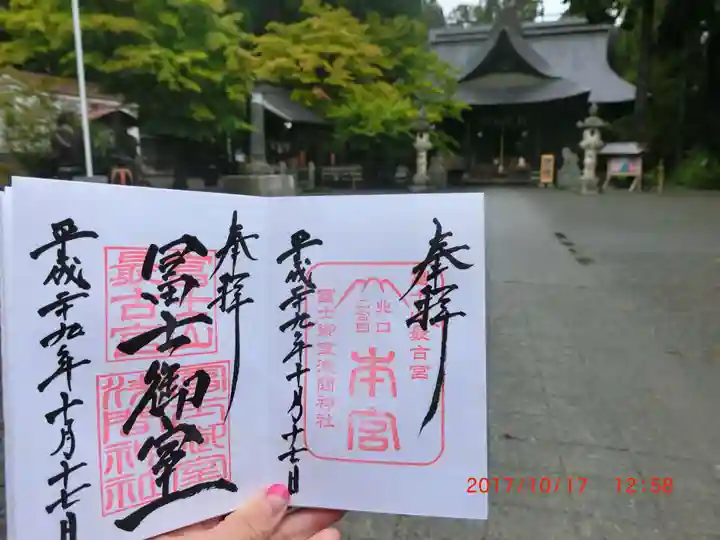 奉拝
富士山
最古宮
北口
二合目
本宮
冨士御室浅間神社
平成二十九年十月十七日
奉拝
冨士山
最古宮
冨士御室
冨士御室
浅間神社
平成二十九年十月十七日
2017/10/17 12:58